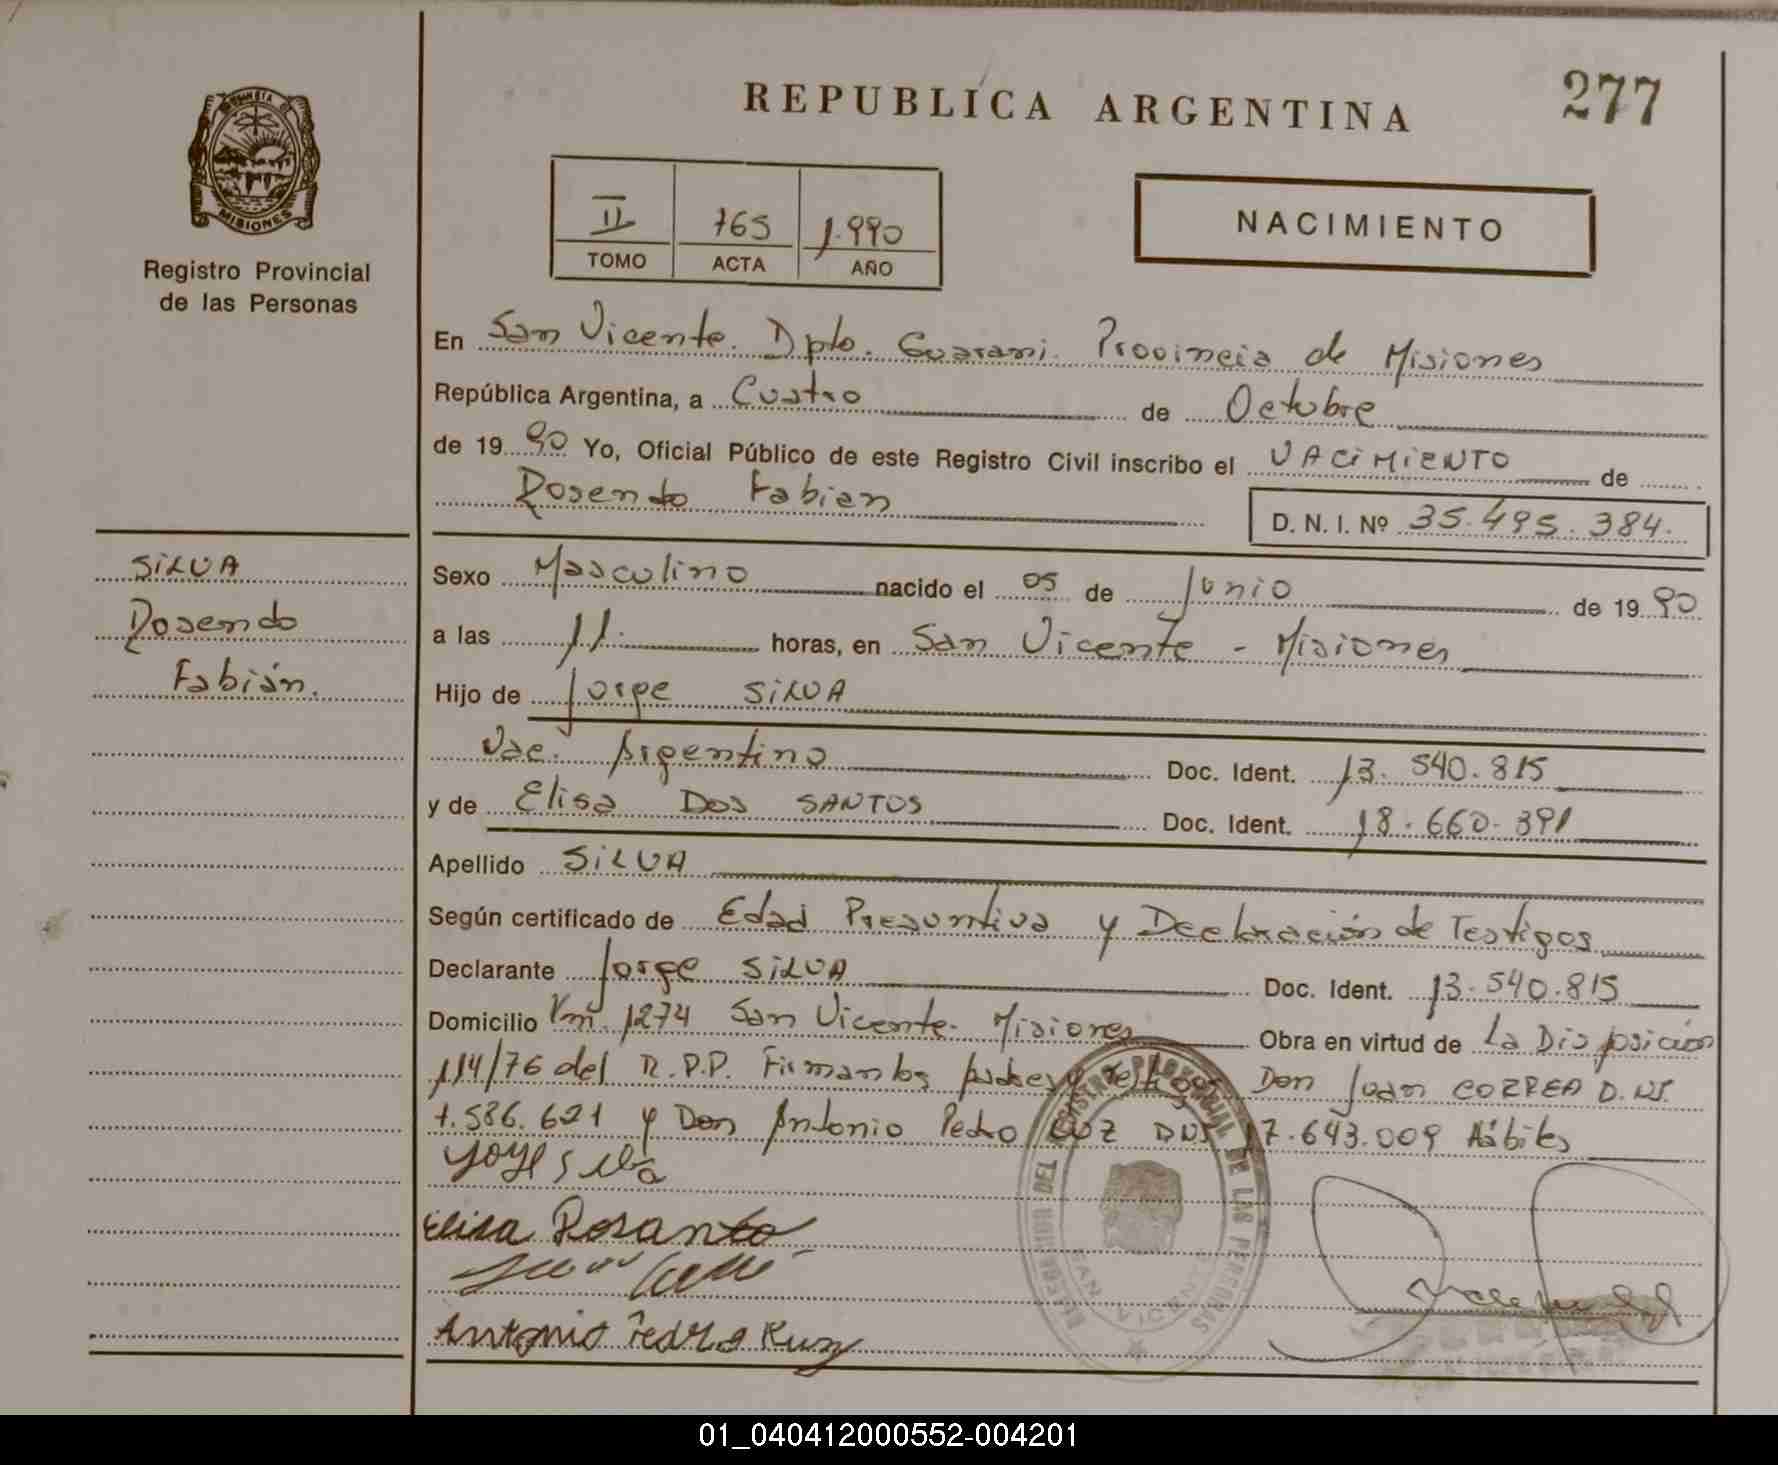 REPUBLICA ARGENTINA
277
MISIONES
Registro Provincial
de las Personas
II 765 1.990
TOMO ACTA AÑO
NACIMIENTO
En San Vicente. Dpto. Guarani. Provincia de Misiones
República Argentina, a Cuatro de Octubre
de 19 90 Yo, Oficial Público de este Registro Civil inscribo el NACIMIENTO de
Rosendo Fabian
D. N. I. Nº 35.495.384.
SILVA
Rosendo
Fabián.
Sexo Masculino nacido el 05 de Junio de 19 90
a las 11. horas, en San Vicente - Misiones
Hijo de Jorge SILVA
Nac. Argentino Doc. Ident. 13.540.815
y de Elisa DOS SANTOS Doc. Ident. 18.660.391
Apellido SILVA
Según certificado de Edad Presuntiva y Declaración de Testigos
Declarante Jorge SILVA Doc. Ident. 13.540.815
Domicilio Km. 1274 San Vicente. Misiones Obra en virtud de La Disposición
114/76 del R.P.P. Firman los padres y Testigos Don Juan CORREA D.NI.
7.586.621 y Don Antonio Pedro CUZ DNI 17.643.009 Hábiles
Elisa Dosanto
Antonio Pedro Kuz
01_040412000552-004201